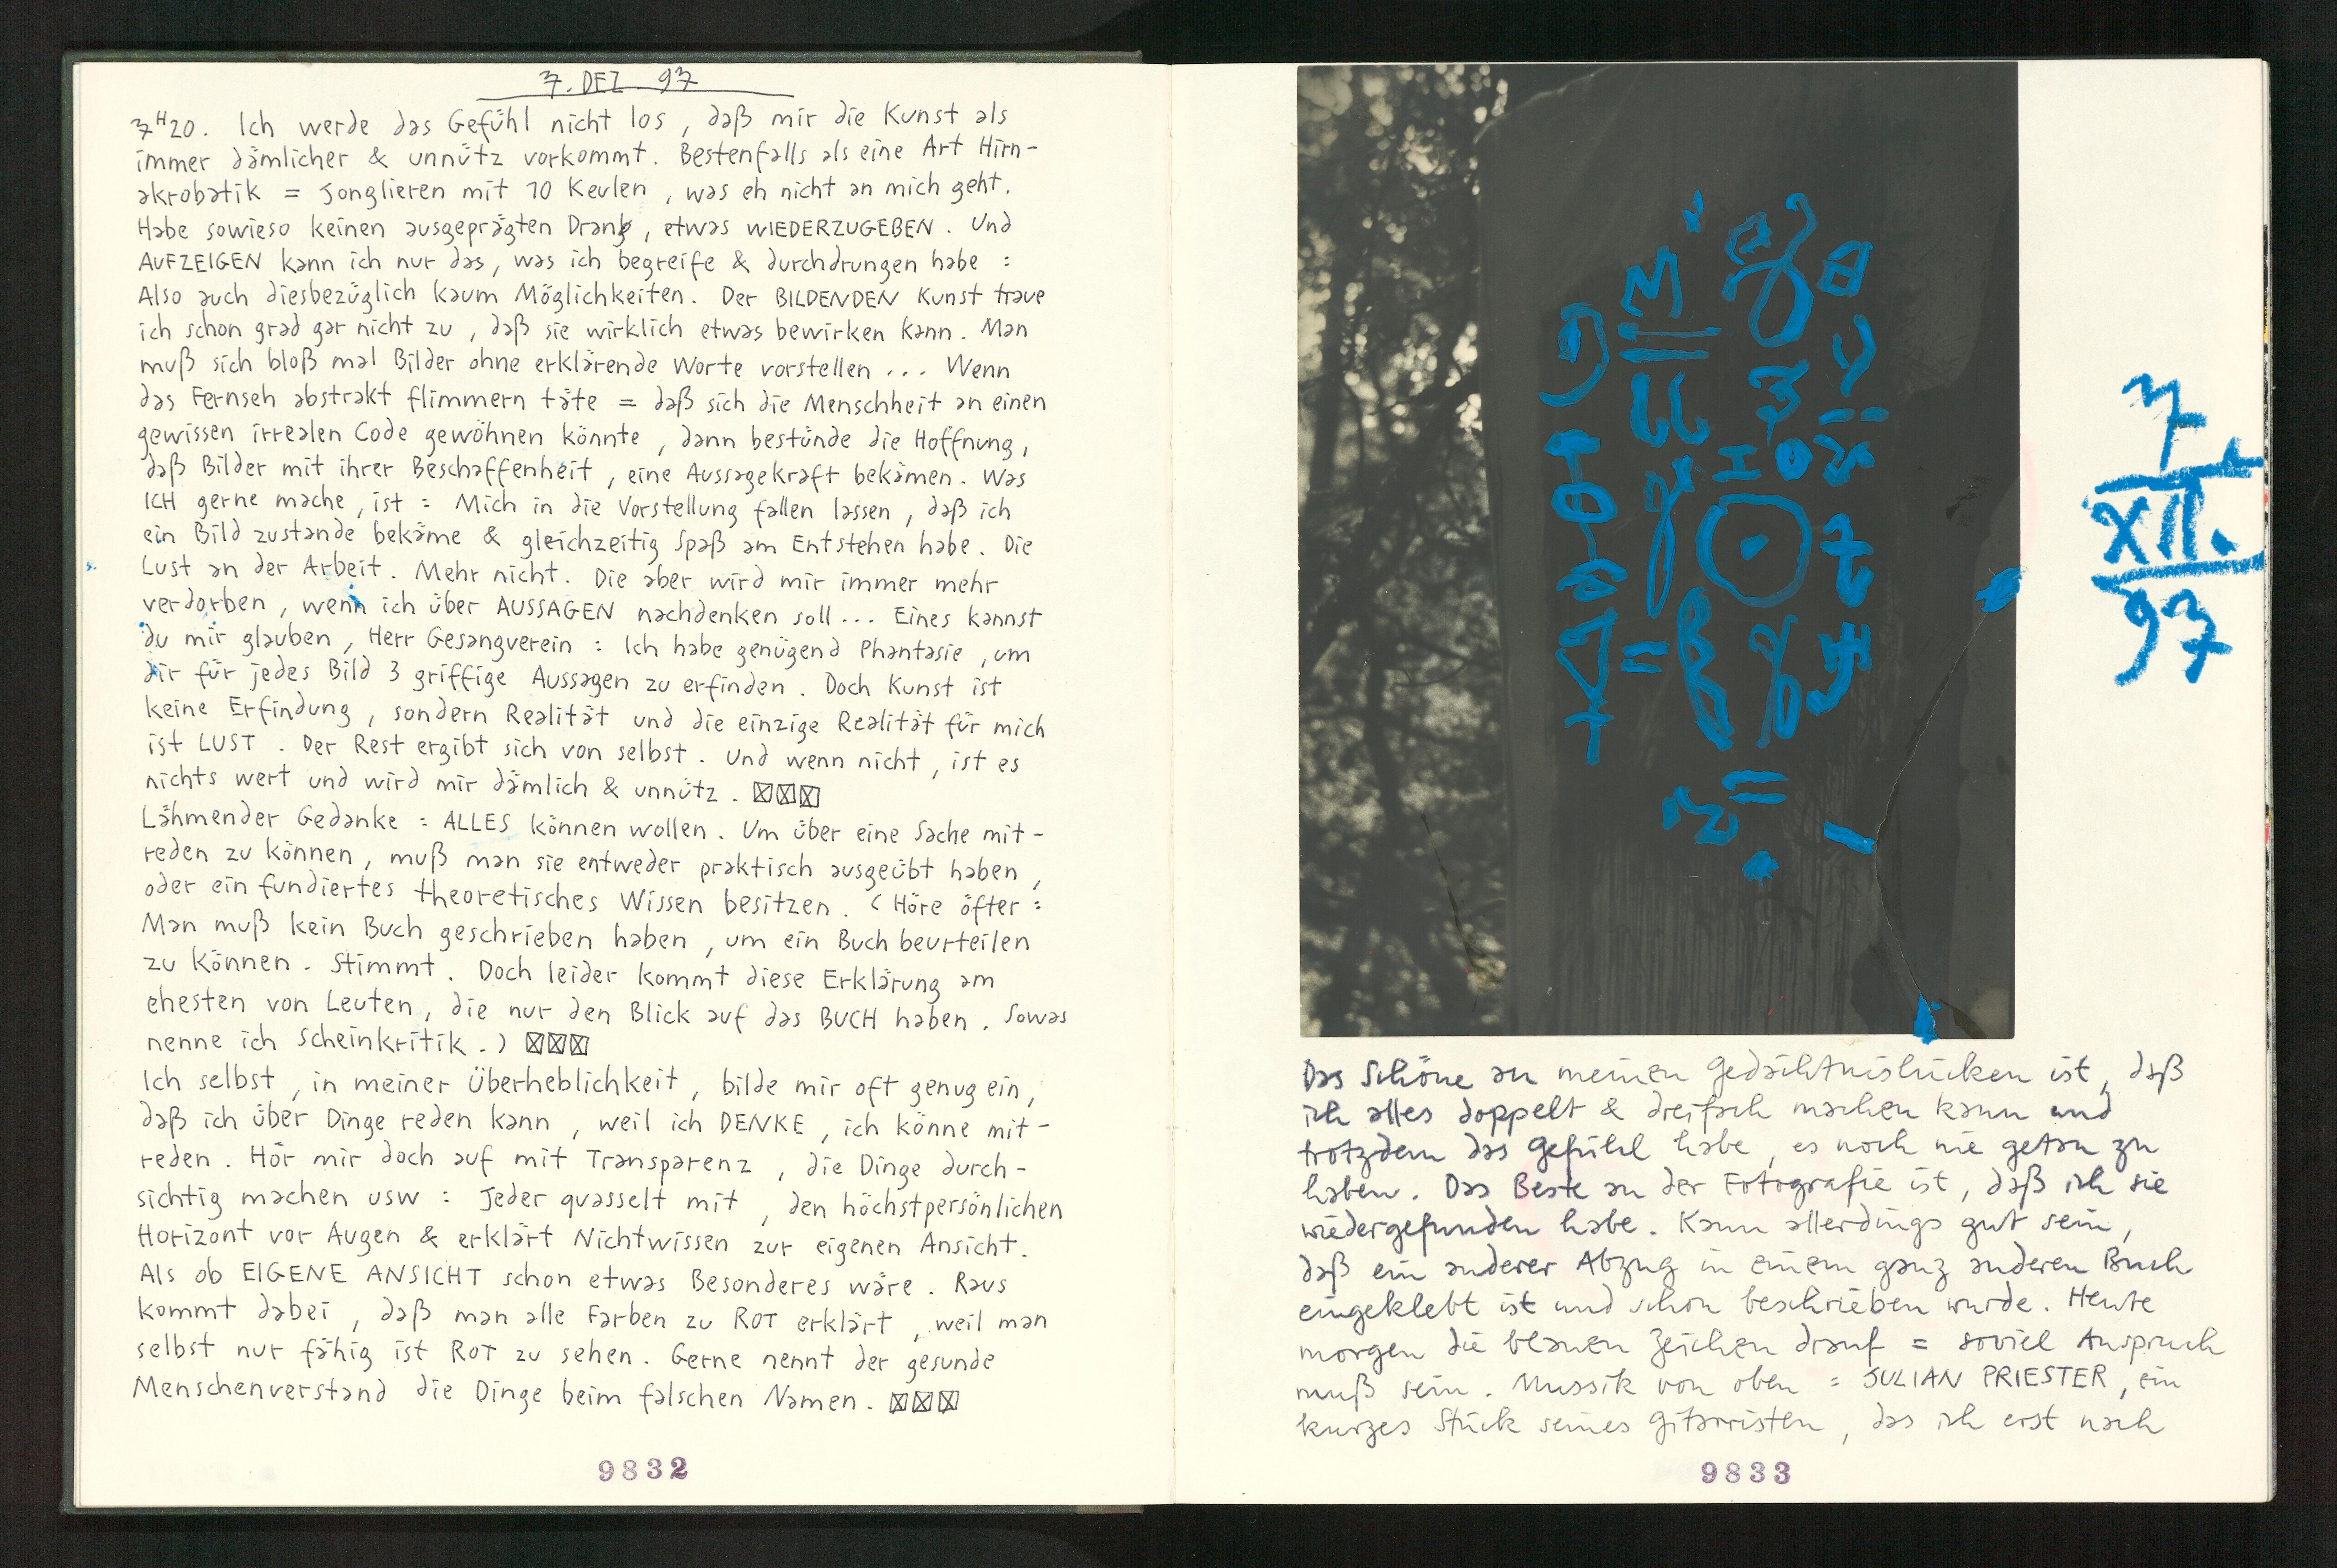 7. DEZ. 97
7H20. Ich werde das Gefühl nicht los, daß mir die Kunst als
immer dämlicher & unnütz vorkommt. Bestenfalls als eine Art Hirn-
akrobatik = Jonglieren mit 10 Keulen, was eh nicht an mich geht.
Habe sowieso keinen ausgeprägten Drang, etwas WIEDERZUGEBEN. Und
AUFZEIGEN kann ich nur das, was ich begreife & durchdrungen habe :
Also auch diesbezüglich kaum Möglichkeiten. Der BILDENDEN Kunst traue
ich schon grad gar nicht zu, daß sie wirklich etwas bewirken kann. Man
muß sich bloß mal Bilder ohne erklärende Worte vorstellen ... Wenn
das Fernseh abstrakt flimmern täte = daß sich die Menschheit an einen
gewissen irrealen Code gewöhnen könnte, dann bestünde die Hoffnung,
daß Bilder mit ihrer Beschaffenheit, eine Aussagekraft bekämen. Was
ICH gerne mache, ist : Mich in die Vorstellung fallen lassen, daß ich
ein Bild zustande bekäme & gleichzeitig Spaß am Entstehen habe. Die
Lust an der Arbeit. Mehr nicht. Die aber wird mir immer mehr
verdorben, wenn ich über AUSSAGEN nachdenken soll ... Eines kannst
du mir glauben, Herr Gesangverein : Ich habe genügend Phantasie, um
dir für jedes Bild 3 griffige Aussagen zu erfinden. Doch Kunst ist
keine Erfindung, sondern Realität und die einzige Realität für mich
ist LUST. Der Rest ergibt sich von selbst. Und wenn nicht, ist es
nichts wert und wird mir dämlich & unnütz. ☒☒☒
Lähmender Gedanke : ALLES können wollen. Um über eine Sache mit-
reden zu können, muß man sie entweder praktisch ausgeübt haben,
oder ein fundiertes theoretisches Wissen besitzen. (Höre öfter :
Man muß kein Buch geschrieben haben, um ein Buch beurteilen
zu können. Stimmt. Doch leider kommt diese Erklärung am
ehesten von Leuten, die nur den Blick auf das BUCH haben. Sowas
nenne ich Scheinkritik.) ☒☒☒
Ich selbst, in meiner Überheblichkeit, bilde mir oft genug ein,
daß ich über Dinge reden kann, weil ich DENKE, ich könne mit-
reden. Hör mir doch auf mit Transparenz, die Dinge durch-
sichtig machen usw : Jeder quasselt mit, den höchstpersönlichen
Horizont vor Augen & erklärt Nichtwissen zur eigenen Ansicht.
Als ob EIGENE ANSICHT schon etwas Besonderes wäre. Raus
kommt dabei, daß man alle Farben zu ROT erklärt, weil man
selbst nur fähig ist ROT zu sehen. Gerne nennt der gesunde
Menschenverstand die Dinge beim falschen Namen. ☒☒☒
9832
7.
XII.
97
Das Schöne an meinen Gedächtnislücken ist, daß
ich alles doppelt & dreifach machen kann und
trotzdem das Gefühl habe, es noch nie getan zu
haben. Das Beste an der Fotografie ist, daß ich sie
wiedergefunden habe. Kann allerdings gut sein,
daß ein anderer Abzug in einem ganz anderen Buch
eingeklebt ist und schon beschrieben wurde. Heute
morgen die blauen Zeichen drauf = soviel Anspruch
muß sein. Mussik von oben : JULIAN PRIESTER, ein
kurzes Stück seines Gitarristen, das ich erst nach
9833